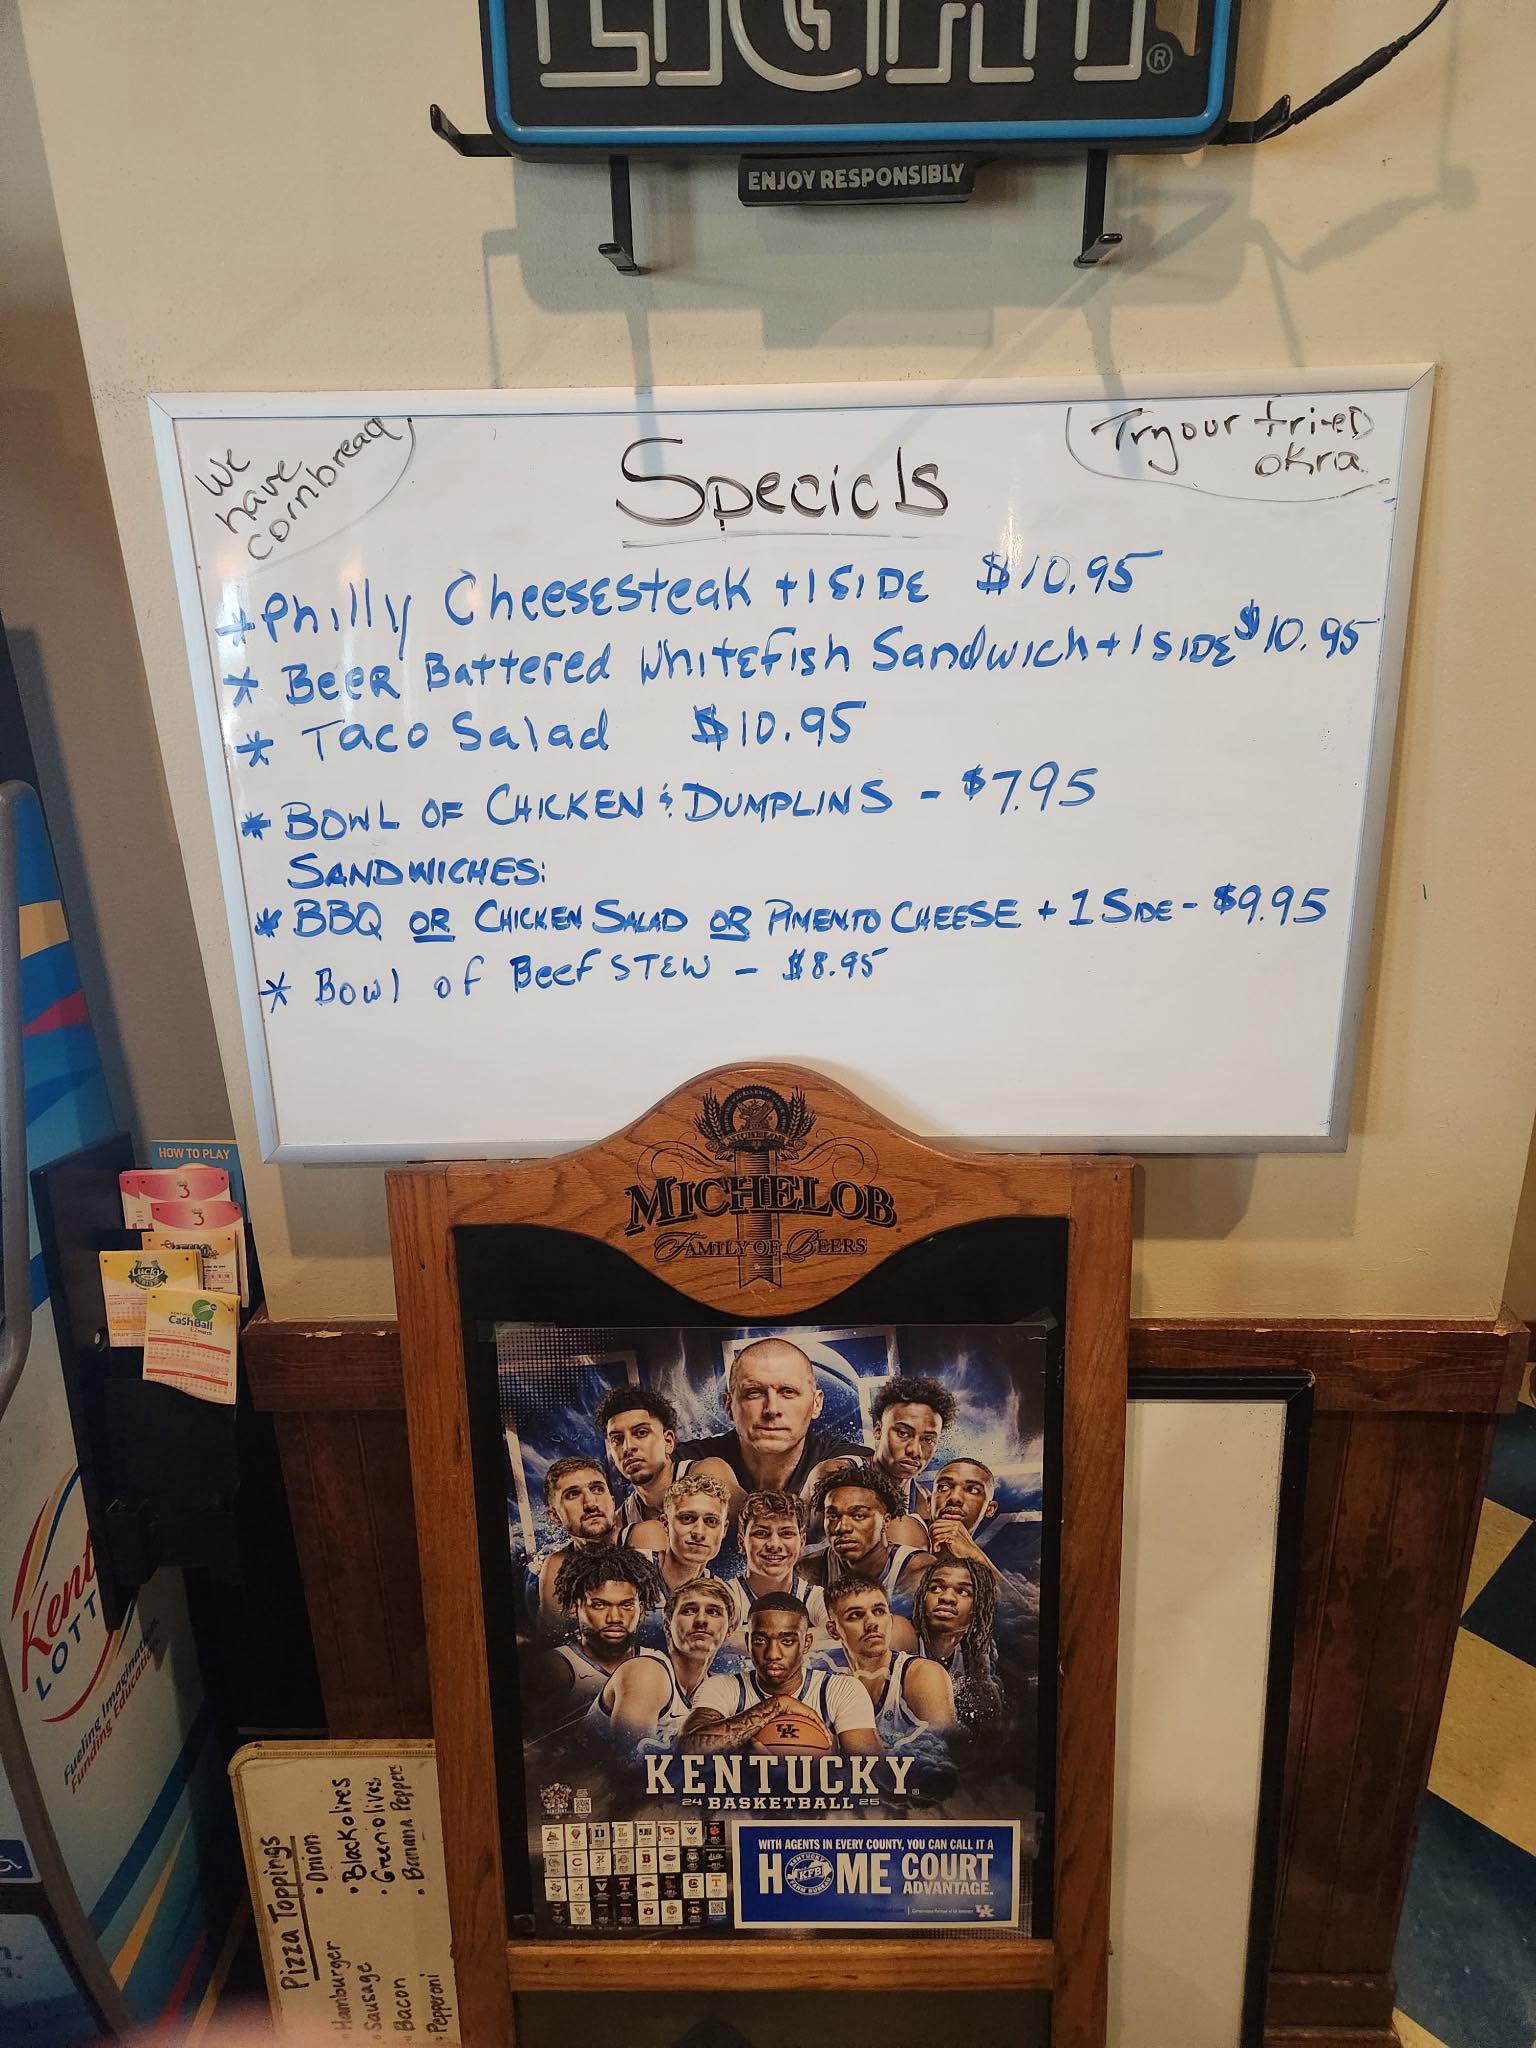 LIGHT
®
ENJOY RESPONSIBLY
We
have
cornbread
Try our fried
okra
Specials
* Philly Cheesesteak + 1 SIDE $10.95
* Beer Battered Whitefish Sandwich + 1 SIDE $10.95
* Taco Salad $10.95
* BOWL OF CHICKEN & DUMPLINS - $7.95
SANDWICHES:
* BBQ OR CHICKEN SALAD OR PIMENTO CHEESE + 1 SIDE - $9.95
* Bowl of Beef STEW - $8.95
MICHELOB
MICHELOB
FAMILY OF BEERS
HOW TO PLAY
3
3
Lucky
KENTUCKY
CashBall
Kent
LOTT
Fueling Imagination
Funding Education
Pizza Toppings
• Hamburger
• Sausage
• Bacon
• Pepperoni
• Onion
• Black olives
• Green olives
• Banana Peppers
UK
KENTUCKY
24 BASKETBALL 25
WITH AGENTS IN EVERY COUNTY, YOU CAN CALL IT A
HOME COURT
ADVANTAGE.
KENTUCKY
KFB
FARM BUREAU
UK